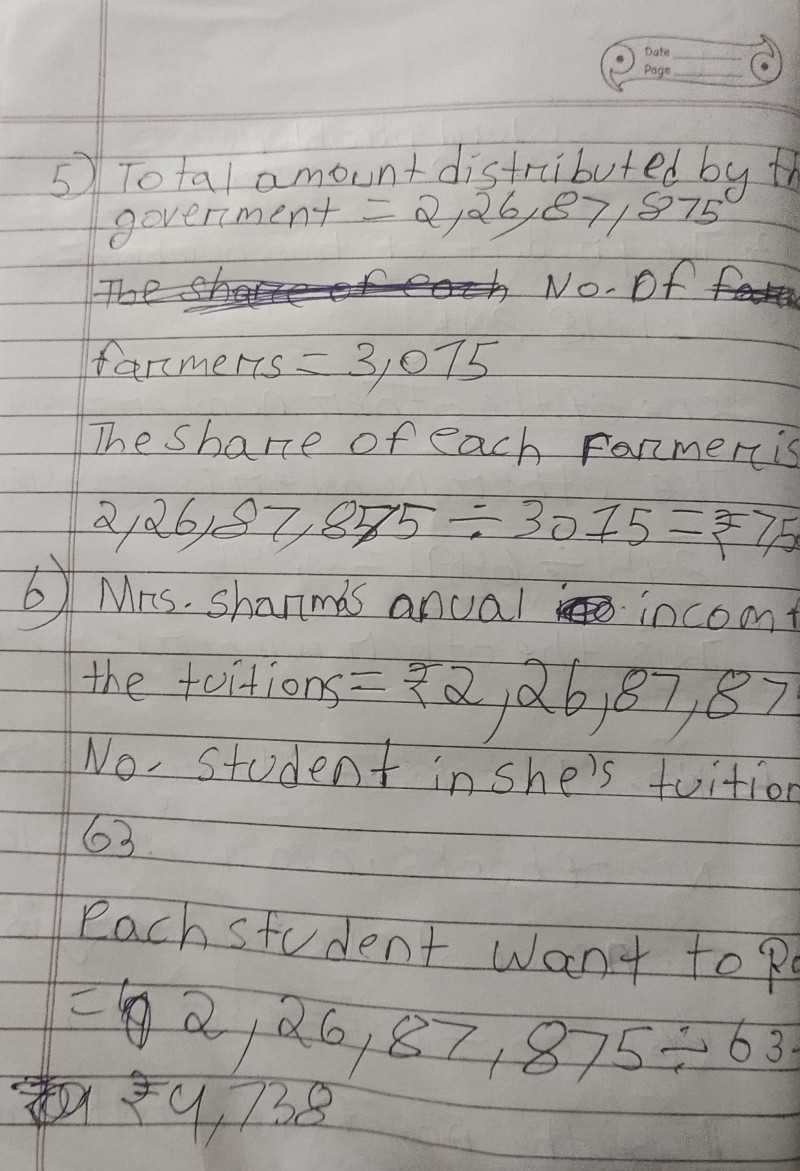 Date
Page
5) Total amount distributed by th
goverment = 2,26,87,875
The share of each No. Of
farmers = 3,075
The share of each Farmer is
2,26,87,875 ÷ 3075 = ₹75
6) Mrs. sharma's anual incom
the tuitions = ₹2,26,87,87
No. student in she's tuition
63
Each student want to Pa
= 2,26,87,875 ÷ 63
₹9,738